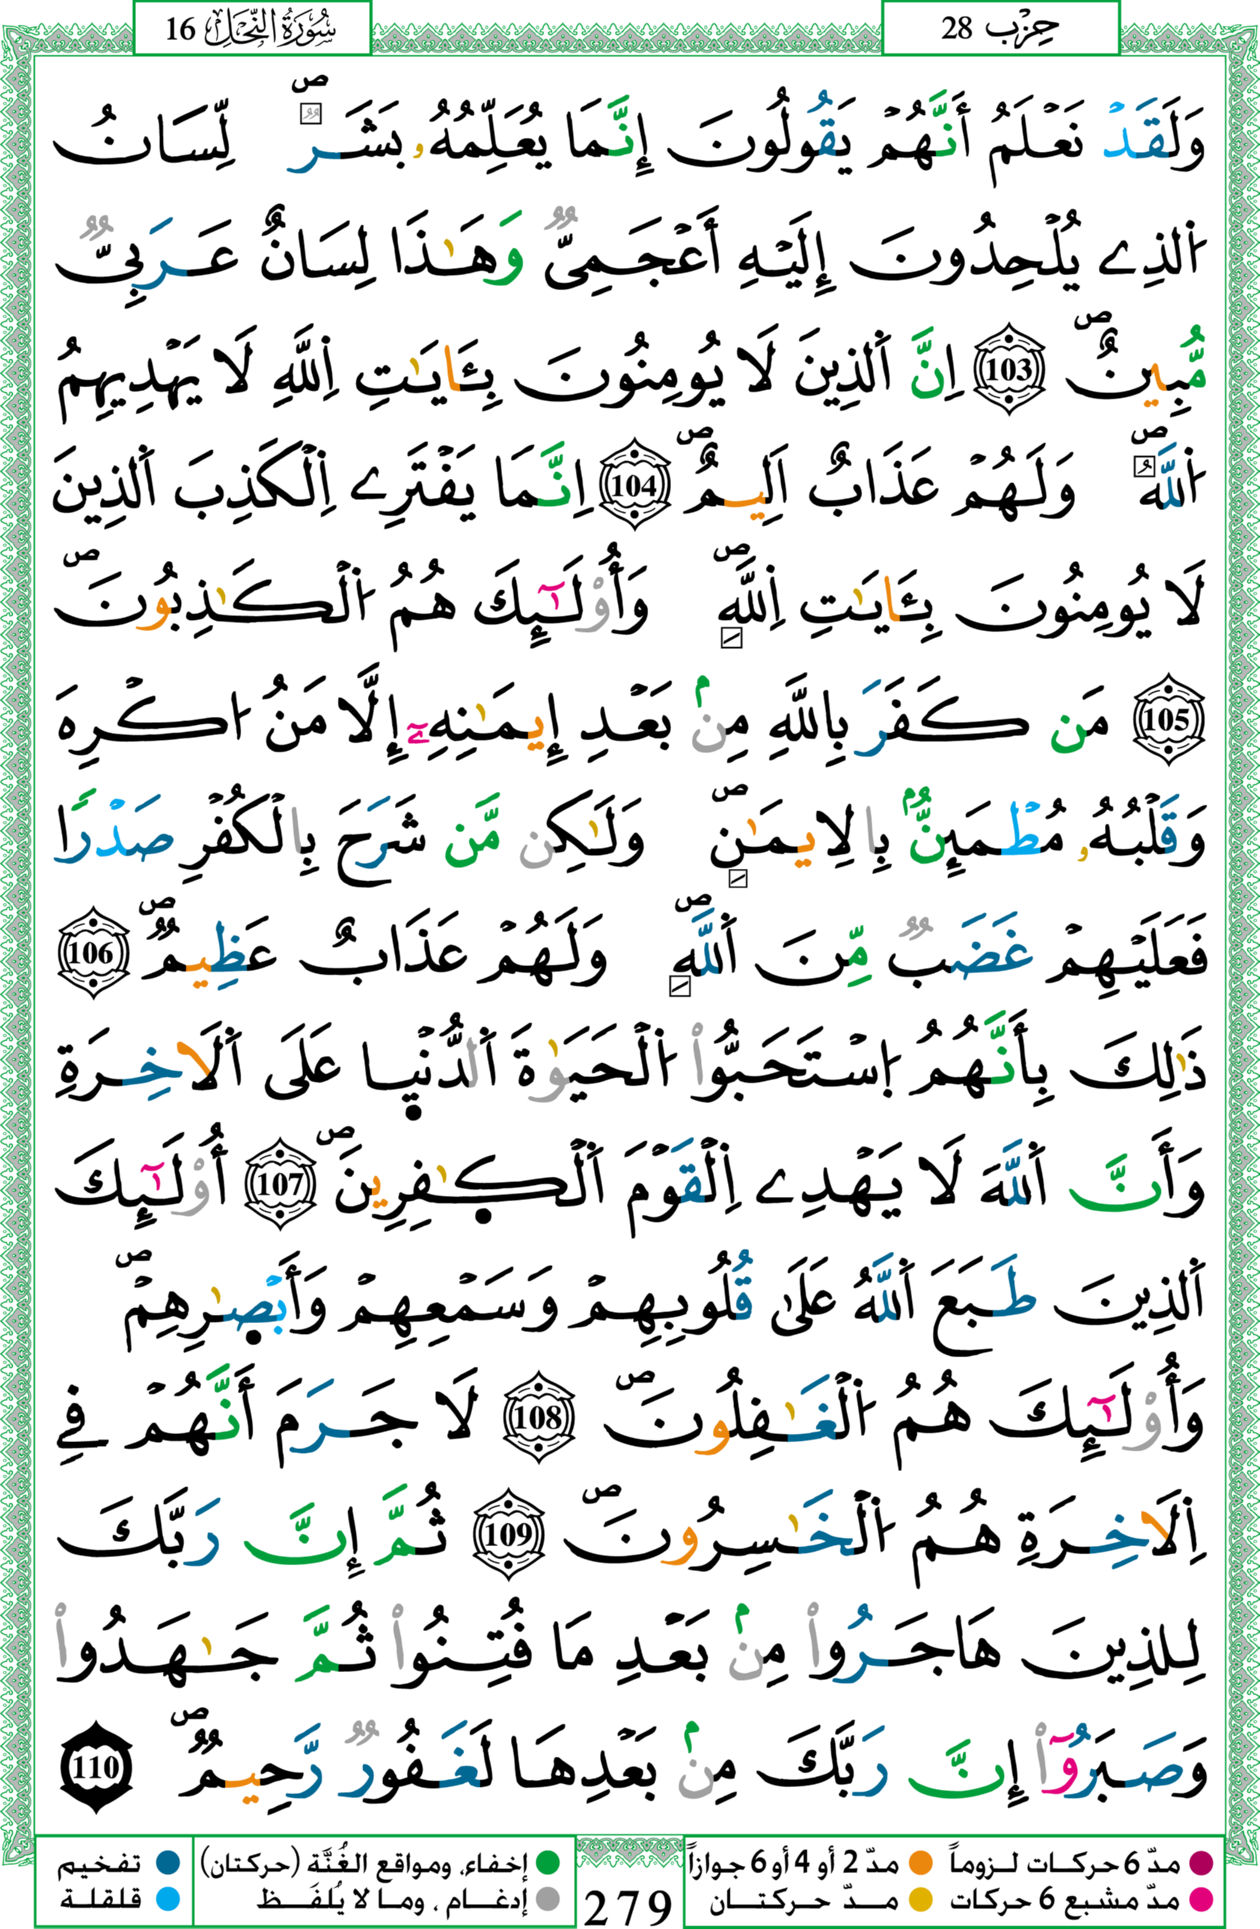 حِزْب 28
سُورَةُ النَّحْلِ 16
وَلَقَدْ نَعْلَمُ أَنَّهُمْ يَقُولُونَ إِنَّمَا يُعَلِّمُهُۥ بَشَرٌۖ لِّسَانُ
اُ۬لذِے يُلْحِدُونَ إِلَيْهِ أَعْجَمِيٌّ وَهَٰذَا لِسَانٌ عَرَبِيٌّ
مُّبِينٌۖ 103 اِنَّ اَ۬لذِينَ لَا يُومِنُونَ بِـَٔايَٰتِ اِ۬للَّهِ لَا يَهْدِيهِمُ
اُ۬للَّهُۖ وَلَهُمْ عَذَابٌ اَلِيمٌۖ 104 اِنَّمَا يَفْتَرِے اِ۬لْكَذِبَ اَ۬لذِينَ
لَا يُومِنُونَ بِـَٔايَٰتِ اِ۬للَّهِۖ وَأُوْلَٰٓئِكَ هُمُ اُ۬لْكَٰذِبُونَۖ
105 مَن كَفَرَ بِاللَّهِ مِنۢ بَعْدِ إِيمَٰنِهِۦٓ إِلَّا مَنُ ا۟كْرِهَ
وَقَلْبُهُۥ مُطْمَئِنٌّۢ بِالِايمَٰنِۖ وَلَٰكِن مَّن شَرَحَ بِالْكُفْرِ صَدْرًا
فَعَلَيْهِمْ غَضَبٌ مِّنَ اَ۬للَّهِۖ وَلَهُمْ عَذَابٌ عَظِيمٌۖ 106
ذَٰلِكَ بِأَنَّهُمُ اُ۪سْتَحَبُّواْ اُ۬لْحَيَوٰةَ اَ۬لدُّنْي۪ا عَلَى اَ۬لَاخِرَةِ
وَأَنَّ اَ۬للَّهَ لَا يَهْدِے اِ۬لْقَوْمَ اَ۬لْكٰ۪فِرِينَۖ 107 أُوْلَٰٓئِكَ
اَ۬لذِينَ طَبَعَ اَ۬للَّهُ عَلَىٰ قُلُوبِهِمْ وَسَمْعِهِمْ وَأَبْصٰ۪رِهِمْۖ
وَأُوْلَٰٓئِكَ هُمُ اُ۬لْغَٰفِلُونَۖ 108 لَا جَرَمَ أَنَّهُمْ فِے
اِ۬لَاخِرَةِ هُمُ اُ۬لْخَٰسِرُونَۖ 109 ثُمَّ إِنَّ رَبَّكَ
لِلذِينَ هَاجَرُواْ مِنۢ بَعْدِ مَا فُتِنُواْ ثُمَّ جَٰهَدُواْ
وَصَبَرُوٓاْ إِنَّ رَبَّكَ مِنۢ بَعْدِهَا لَغَفُورٌ رَّحِيمٌۖ 110
مدّ 6 حركات لـزوماً مدّ 2 أو 4 أو 6 جوازاً
مدّ مشبع 6 حركات مـدّ حـركـتـان
279
إخفاء، ومواقع الغُنَّة (حركتان) تفخيم
إدغـام ، ومـا لا يُلفَـظ قلقلة